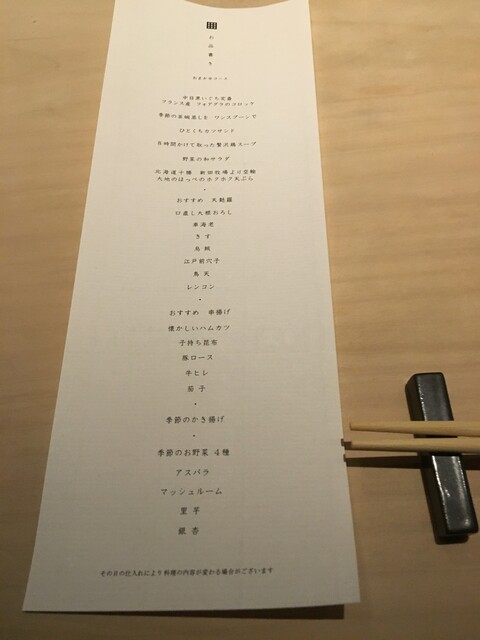 お品書き
おまかせコース
中目黒いぐち定番
フランス産 フォアグラのコロッケ
季節の茶碗蒸しを ワンスプーンで
ひとくちカツサンド
8時間かけて取った贅沢鶏スープ
野菜の和サラダ
北海道十勝 新田牧場より空輸
大地のほっぺのホクホク天ぷら
おすすめ 天麩羅
口直し大根おろし
車海老
きす
烏賊
江戸前穴子
鳥天
レンコン
おすすめ 串揚げ
懐かしいハムカツ
子持ち昆布
豚ロース
牛ヒレ
茄子
季節のかき揚げ
季節のお野菜 4種
アスパラ
マッシュルーム
里芋
銀杏
その日の仕入れにより料理の内容が変わる場合がございます